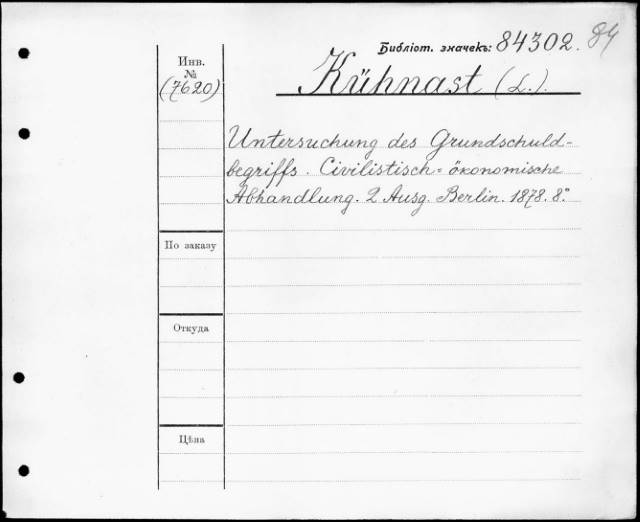 Библіот. значекъ: 84302. 84
Инв.
№
(7620)
Kühnast (L.).
Untersuchung des Grundschuld-
begriffs. Civilistisch-ökonomische
Abhandlung. 2 Ausg. Berlin. 1878. 8°.
По заказу
Откуда
Цѣна